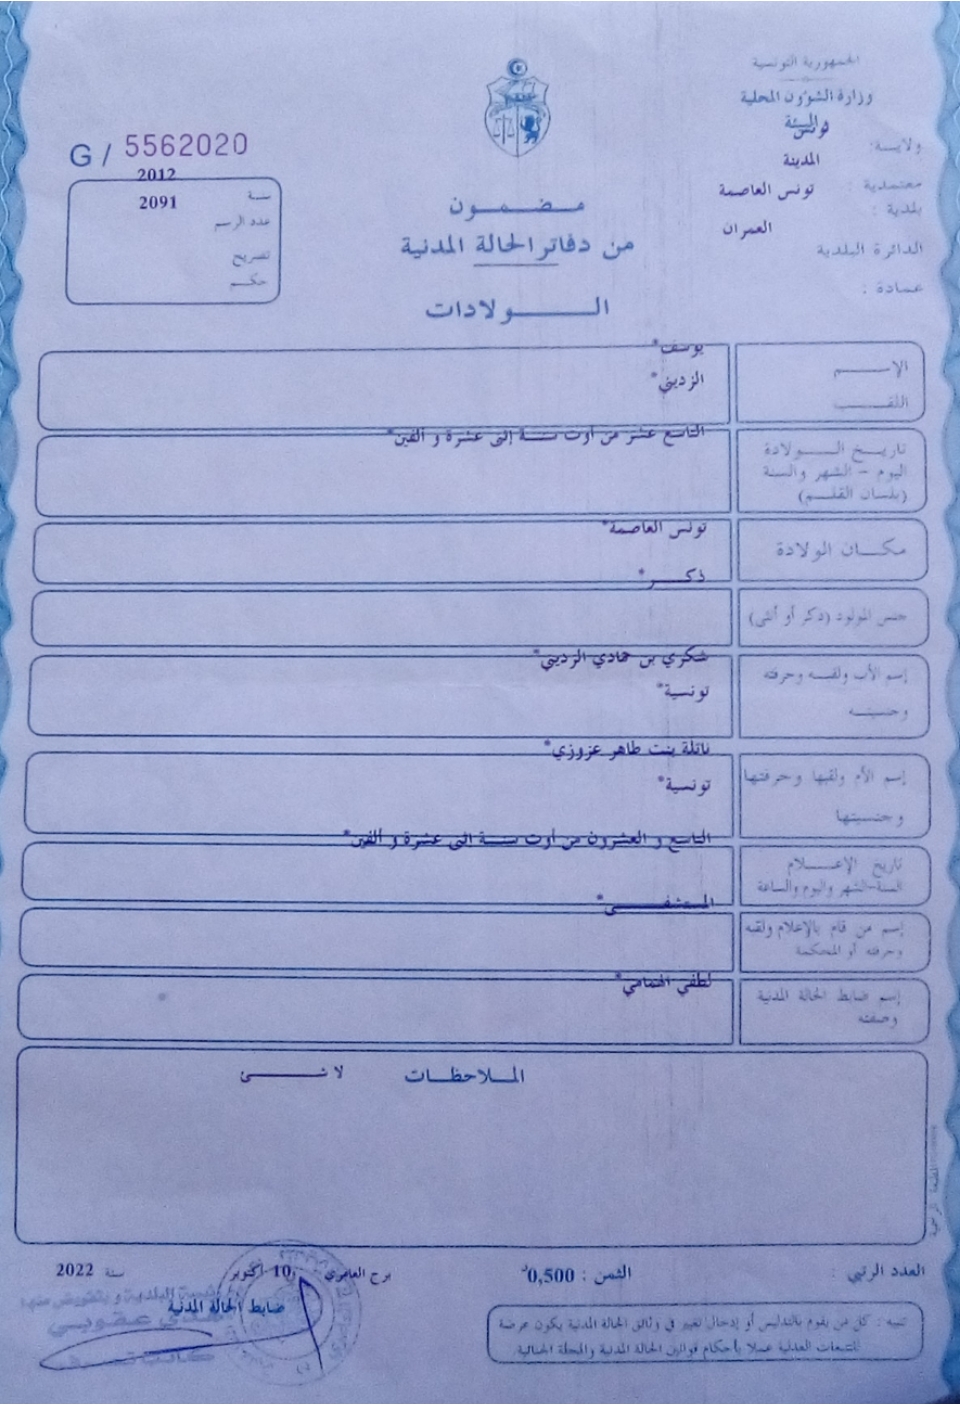 الجمهورية التونسية
وزارة الشؤون المحلية
ولاية: تونس
معتمدية : المدينة
بلدية : تونس العاصمة
الدائرة البلدية العمران
عمادة :
G / 5562020
سنة 2012
عدد الرسم 2091
تصريح
حكم
مضمون
من دفاتر الحالة المدنية
الولادات
الإسم يوسف*
اللقب الزديني*
تاريخ الولادة التاسع عشر من أوت سنة إثنى عشرة و ألفين*
اليوم - الشهر والسنة
(بلسان القلم)
مكان الولادة تونس العاصمة*
جنس المولود (ذكر أو أنثى) ذكر*
إسم الأب ولقبه وحرفته شكري بن حمادي الزديني*
وجنسيته تونسية*
إسم الأم ولقبها وحرفتها نائلة بنت طاهر عزوزي*
وجنسيتها تونسية*
تاريخ الإعلام التاسع و العشرون من أوت سنة اثنى عشرة و ألفين*
السنة-الشهر واليوم والساعة
إسم من قام بالإعلام ولقبه المستشفى*
وحرفته أو المحكمة
إسم ضابط الحالة المدنية لطفي الهمامي*
وصفته
الملاحظات لا شئ
العدد الرتبي : الثمن : 0,500د برج العامري 10 أكتوبر سنة 2022
ضابط الحالة المدنية
تنبيه : كل من يقوم بالتدليس أو إدخال تغيير في وثائق الحالة المدنية يكون عرضة
للتتبعات العدلية عملا بأحكام قوانين الحالة المدنية والمجلة الجنائية.